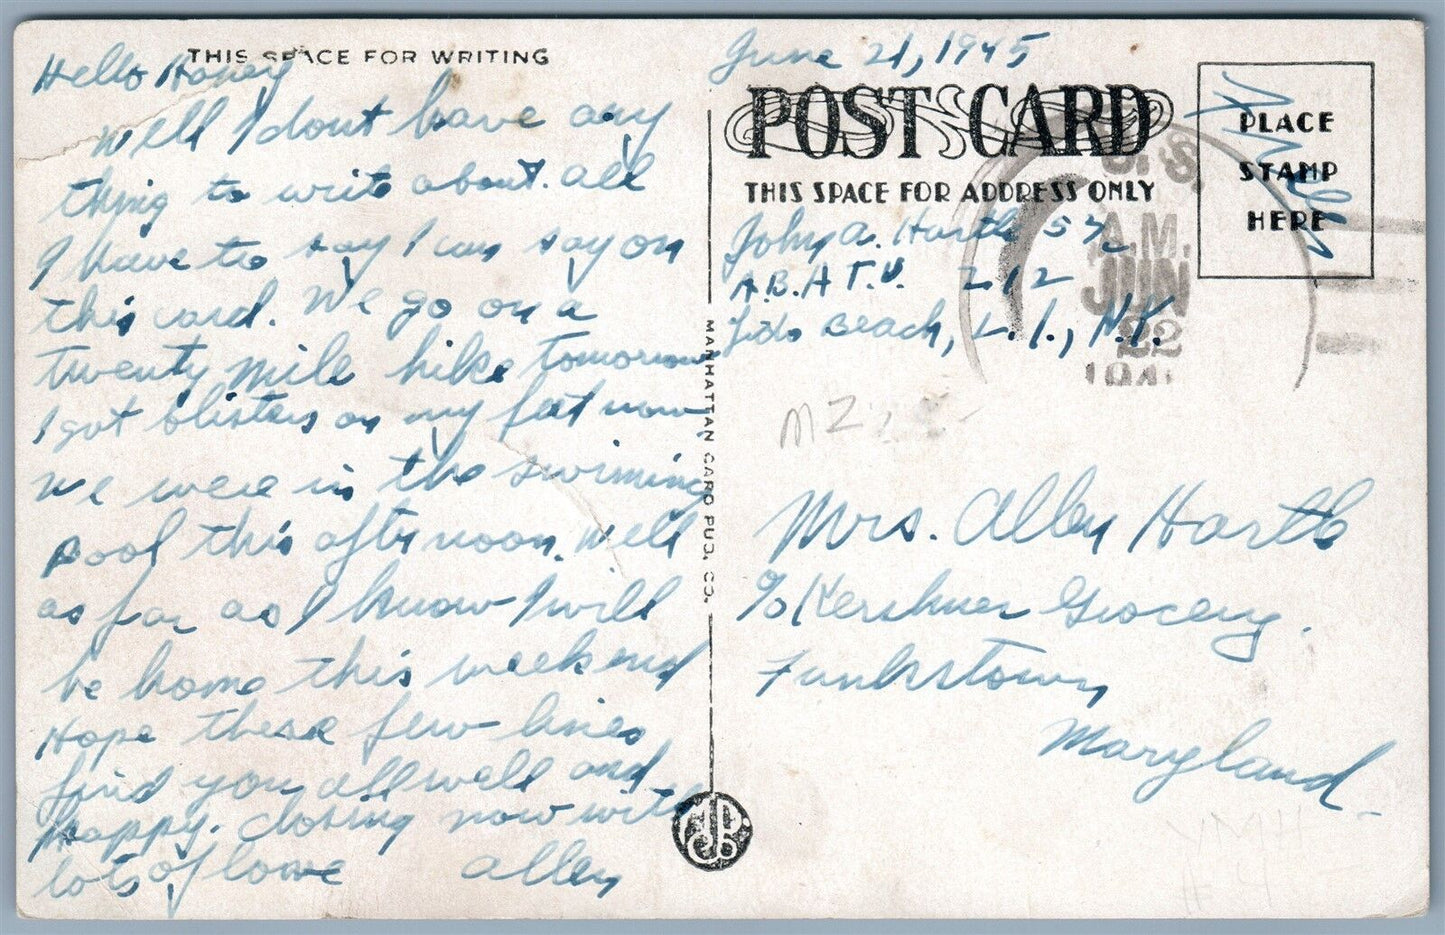 THIS SPACE FOR WRITING
Hello Honey
Well I dont have any
thing to write about. all
I have to say I can say on
this card. We go on a
twenty mile hike tomorrow
I got blisters on my feet now
we were in the swiming
pool this afternoon. Well
as far as I know I will
be home this week end
Hope these few lines
find you all well and
happy. closing now with
lots of love Allen
MANHATTAN CARD PUB. CO.
June 21, 1945
POST CARD
THIS SPACE FOR ADDRESS ONLY
PLACE
STAMP
HERE
Free
John A. Hartle S 2/c
A.B.A.T.U. 212
Lido Beach, L.I., N.Y.
U.S.
A.M.
JUN
22
194
Mrs. Allen Hartle
c/o Kershner Grocery.
Funkstown
Maryland.